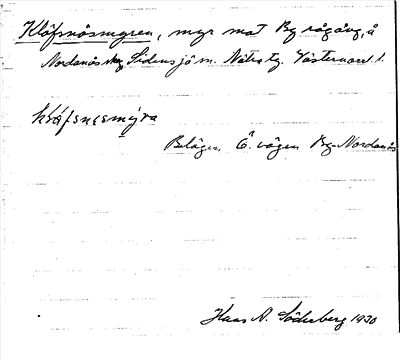 Klöfsnäsmyren, myr mot By rågång, å
Nordanås äg. Sidensjö sn. Nätra tg. Västernorrl. l.
klöfsnesmýra
Belägen Ö. vägen By-Nordanås
Hans A. Söderberg 1930